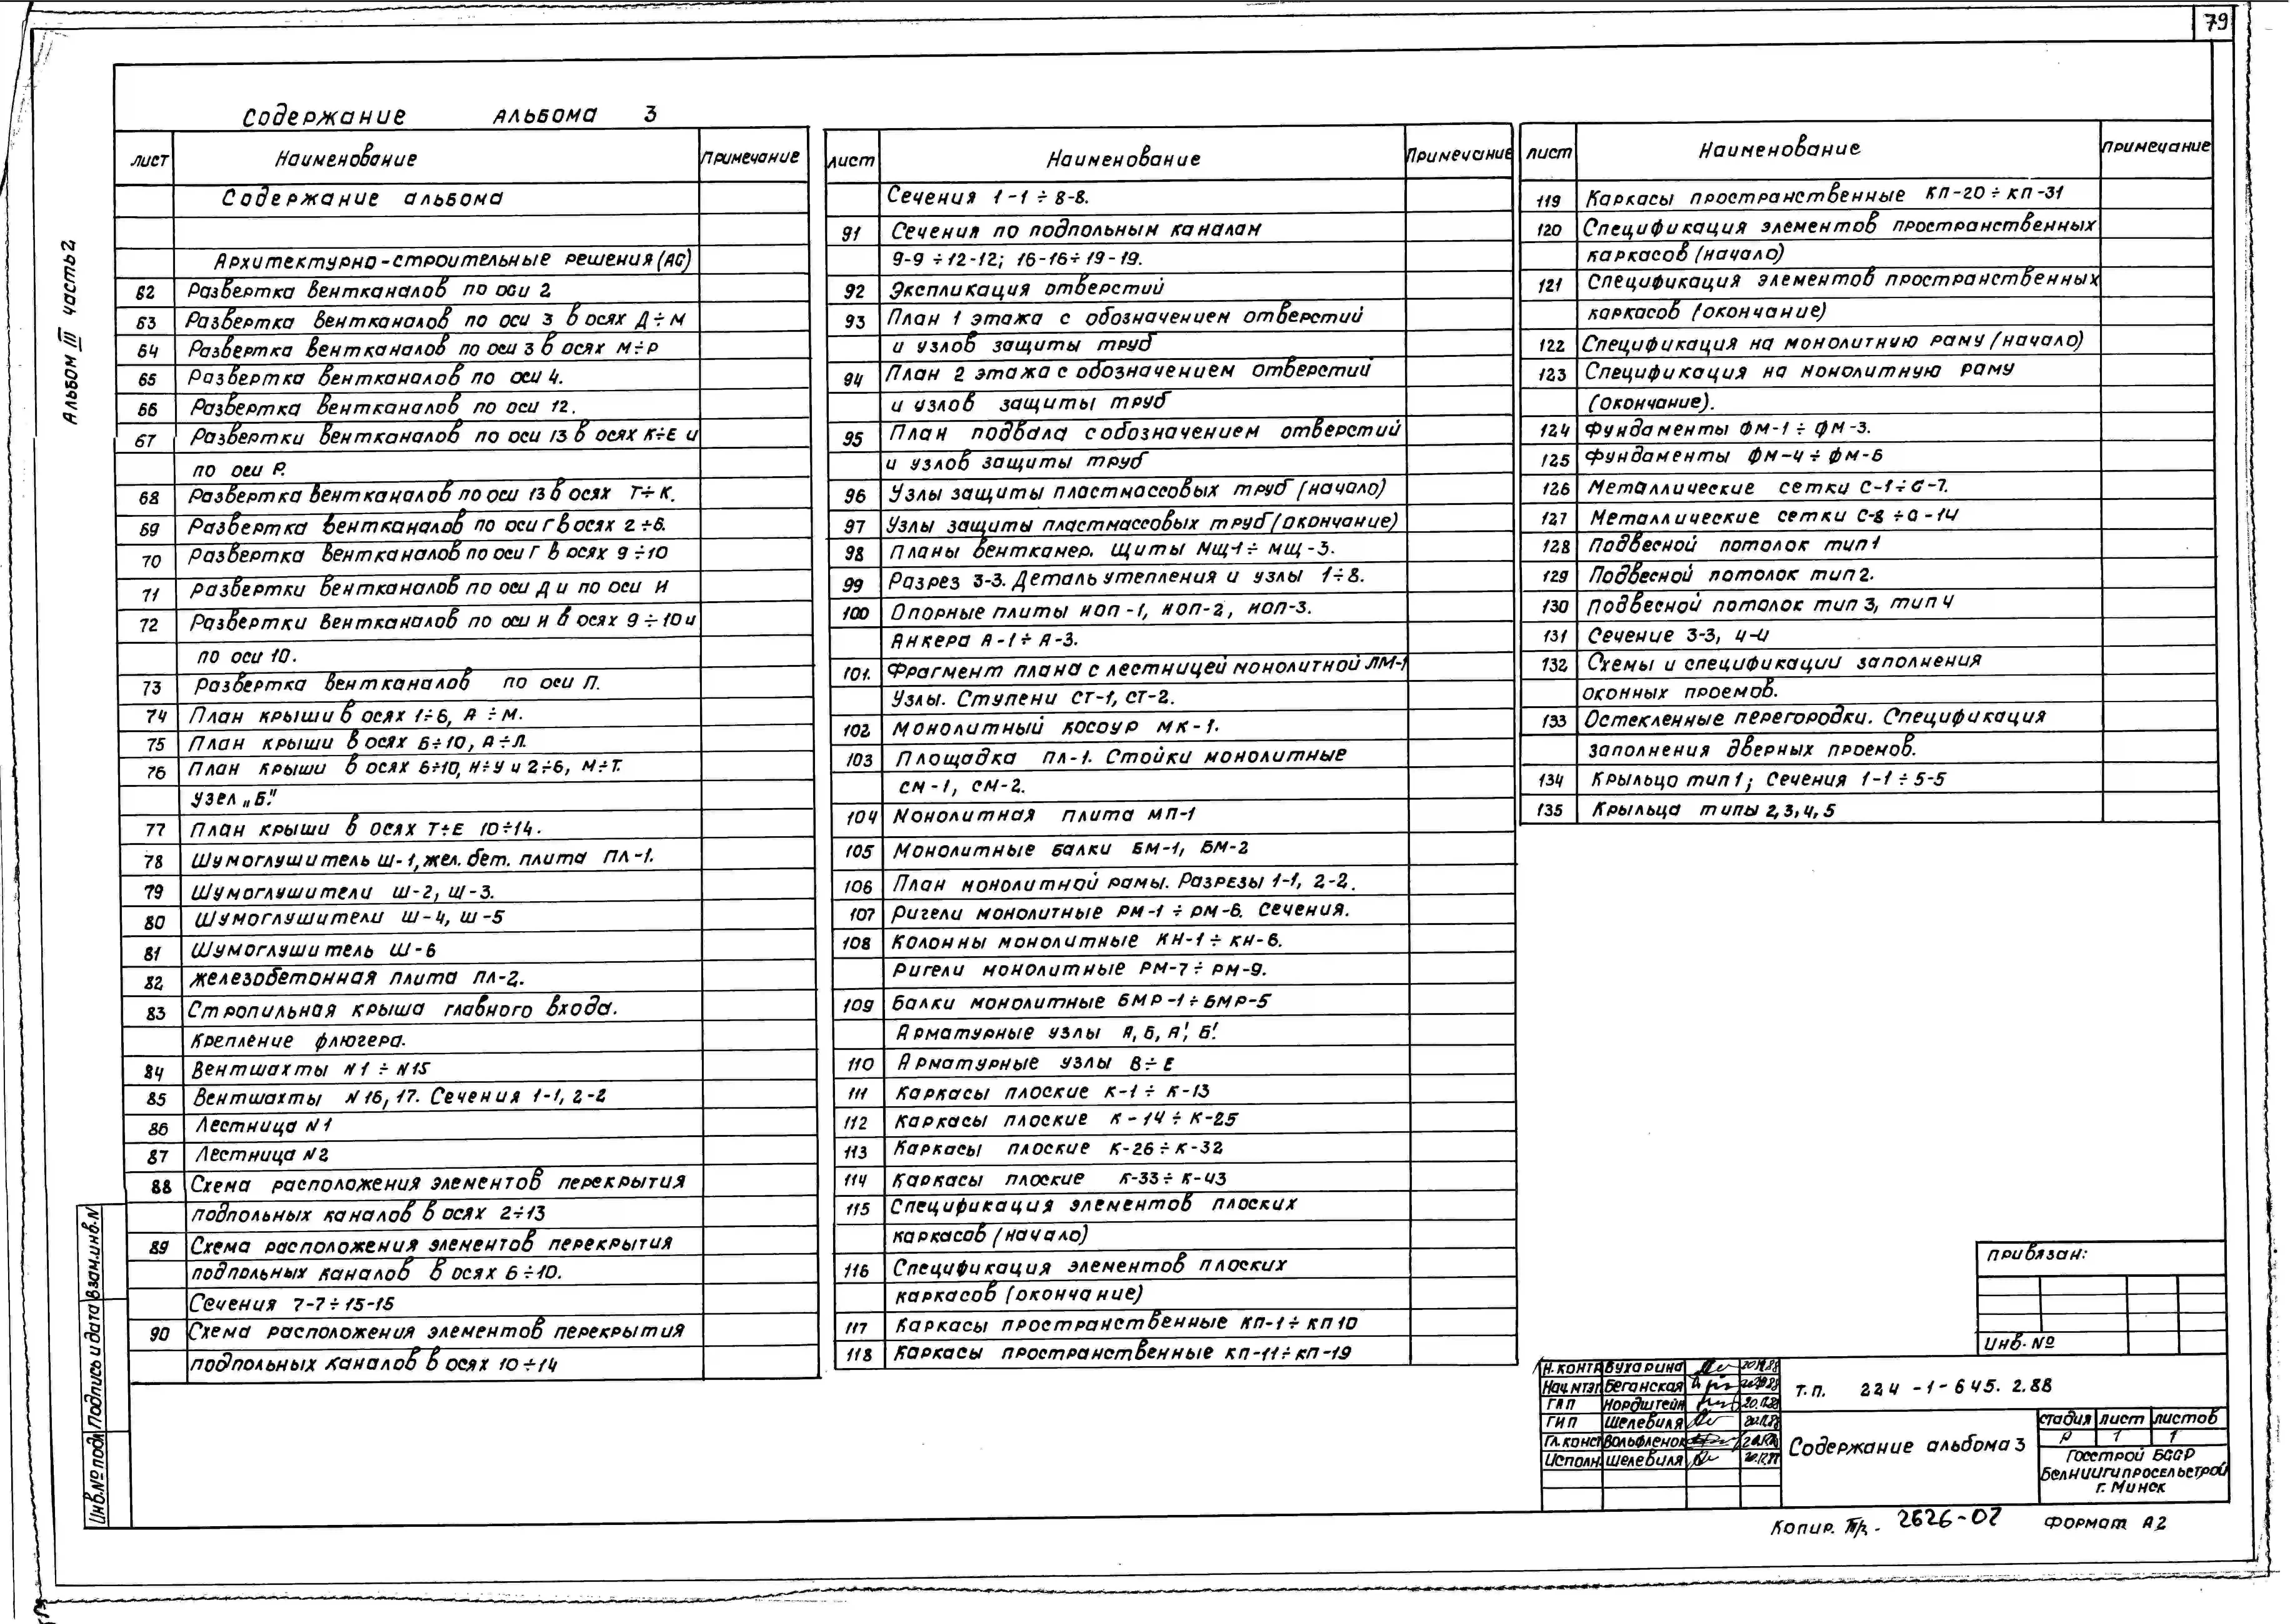 79
Альбом III часть 2
Содержание альбома 3
лист Наименование Примечание
Содержание альбома
Архитектурно-строительные решения (АС)
62 Развертка вентканалов по оси 2
63 Развертка вентканалов по оси 3 в осях Д÷М
64 Развертка вентканалов по оси 3 в осях М÷Р
65 Развертка вентканалов по оси 4.
66 Развертка вентканалов по оси 12.
67 Развертки вентканалов по оси 13 в осях К÷Е и
по оси Р.
68 Развертка вентканалов по оси 13 в осях Т÷К.
69 Развертка вентканалов по оси Г в осях 2÷6.
70 Развертка вентканалов по оси Г в осях 9÷10
71 Развертки вентканалов по оси Д и по оси И
72 Развертки вентканалов по оси Н в осях 9÷10 и
по оси 10.
73 Развертка вентканалов по оси П.
74 План крыши в осях 1÷6, А÷М.
75 План крыши в осях 6÷10, А÷Л.
76 План крыши в осях 6÷10, Н÷У и 2÷6, М÷Т.
Узел „Б"
77 План крыши в осях Т÷Е 10÷14.
78 Шумоглушитель Ш-1, жел. бет. плита ПЛ-1.
79 Шумоглушители Ш-2, Ш-3.
80 Шумоглушители Ш-4, Ш-5
81 Шумоглушитель Ш-6
82 Железобетонная плита ПЛ-2.
83 Стропильная крыша главного входа.
Крепление флюгера.
84 Вентшахты N1÷N15
85 Вентшахты N16, 17. Сечения 1-1, 2-2
86 Лестница N1
87 Лестница N2
88 Схема расположения элементов перекрытия
подпольных каналов в осях 2÷13
89 Схема расположения элементов перекрытия
подпольных каналов в осях 6÷10.
Сечения 7-7÷15-15
90 Схема расположения элементов перекрытия
подпольных каналов в осях 10÷14
лист Наименование Примечание
Сечения 1-1÷8-8.
91 Сечения по подпольным каналам
9-9÷12-12; 16-16÷19-19.
92 Экспликация отверстий
93 План 1 этажа с обозначением отверстий
и узлов защиты труб
94 План 2 этажа с обозначением отверстий
и узлов защиты труб
95 План подвала с обозначением отверстий
и узлов защиты труб
96 Узлы защиты пластмассовых труб (начало)
97 Узлы защиты пластмассовых труб (окончание)
98 Планы венткамер. Щиты МЩ-1÷МЩ-3.
99 Разрез 3-3. Деталь утепления и узлы 1÷8.
100 Опорные плиты МОП-1, МОП-2, МОП-3.
Анкера А-1÷А-3.
101. Фрагмент плана с лестницей монолитной ЛМ-1
Узлы. Ступени СТ-1, СТ-2.
102 Монолитный косоур МК-1.
103 Площадка ПЛ-1. Стойки монолитные
СМ-1, СМ-2.
104 Монолитная плита МП-1
105 Монолитные балки БМ-1, БМ-2
106 План монолитной рамы. Разрезы 1-1, 2-2.
107 Ригели монолитные РМ-1÷РМ-6. Сечения.
108 Колонны монолитные КН-1÷КН-6.
Ригели монолитные РМ-7÷РМ-9.
109 Балки монолитные БМР-1÷БМР-5
Арматурные узлы А, Б, А', Б'.
110 Арматурные узлы В÷Е
111 Каркасы плоские К-1÷К-13
112 Каркасы плоские К-14÷К-25
113 Каркасы плоские К-26÷К-32
114 Каркасы плоские К-33÷К-43
115 Спецификация элементов плоских
каркасов (начало)
116 Спецификация элементов плоских
каркасов (окончание)
117 Каркасы пространственные КП-1÷КП10
118 Каркасы пространственные КП-11÷КП-19
лист Наименование Примечание
119 Каркасы пространственные КП-20÷КП-31
120 Спецификация элементов пространственных
каркасов (начало)
121 Спецификация элементов пространственных
каркасов (окончание)
122 Спецификация на монолитную раму (начало)
123 Спецификация на монолитную раму
(окончание).
124 Фундаменты ФМ-1÷ФМ-3.
125 Фундаменты ФМ-4÷ФМ-6
126 Металлические сетки С-1÷С-7.
127 Металлические сетки С-8÷С-14
128 Подвесной потолок тип 1
129 Подвесной потолок тип 2.
130 Подвесной потолок тип 3, тип 4
131 Сечение 3-3, 4-4
132 Схемы и спецификации заполнения
оконных проемов.
133 Остекленные перегородки. Спецификация
заполнения дверных проемов.
134 Крыльцо тип 1; Сечения 1-1÷5-5
135 Крыльца типы 2, 3, 4, 5
Привязан:
Инв. №
Н. контр Бухарина
Нач. мтэп Беганская
ГАП Нордштейн
ГИП Шелевиля
Гл. конст Вольфленок
Исполн. Шелевиля
Т.П. 224-1-645.2.88
Содержание альбома 3
стадия лист листов
Р 1 1
Госстрой БССР
Белниигипросельстрой
г. Минск
Копир. 2626-02 Формат А2
Взам. инв. N
Подпись и дата
Инв. № подл